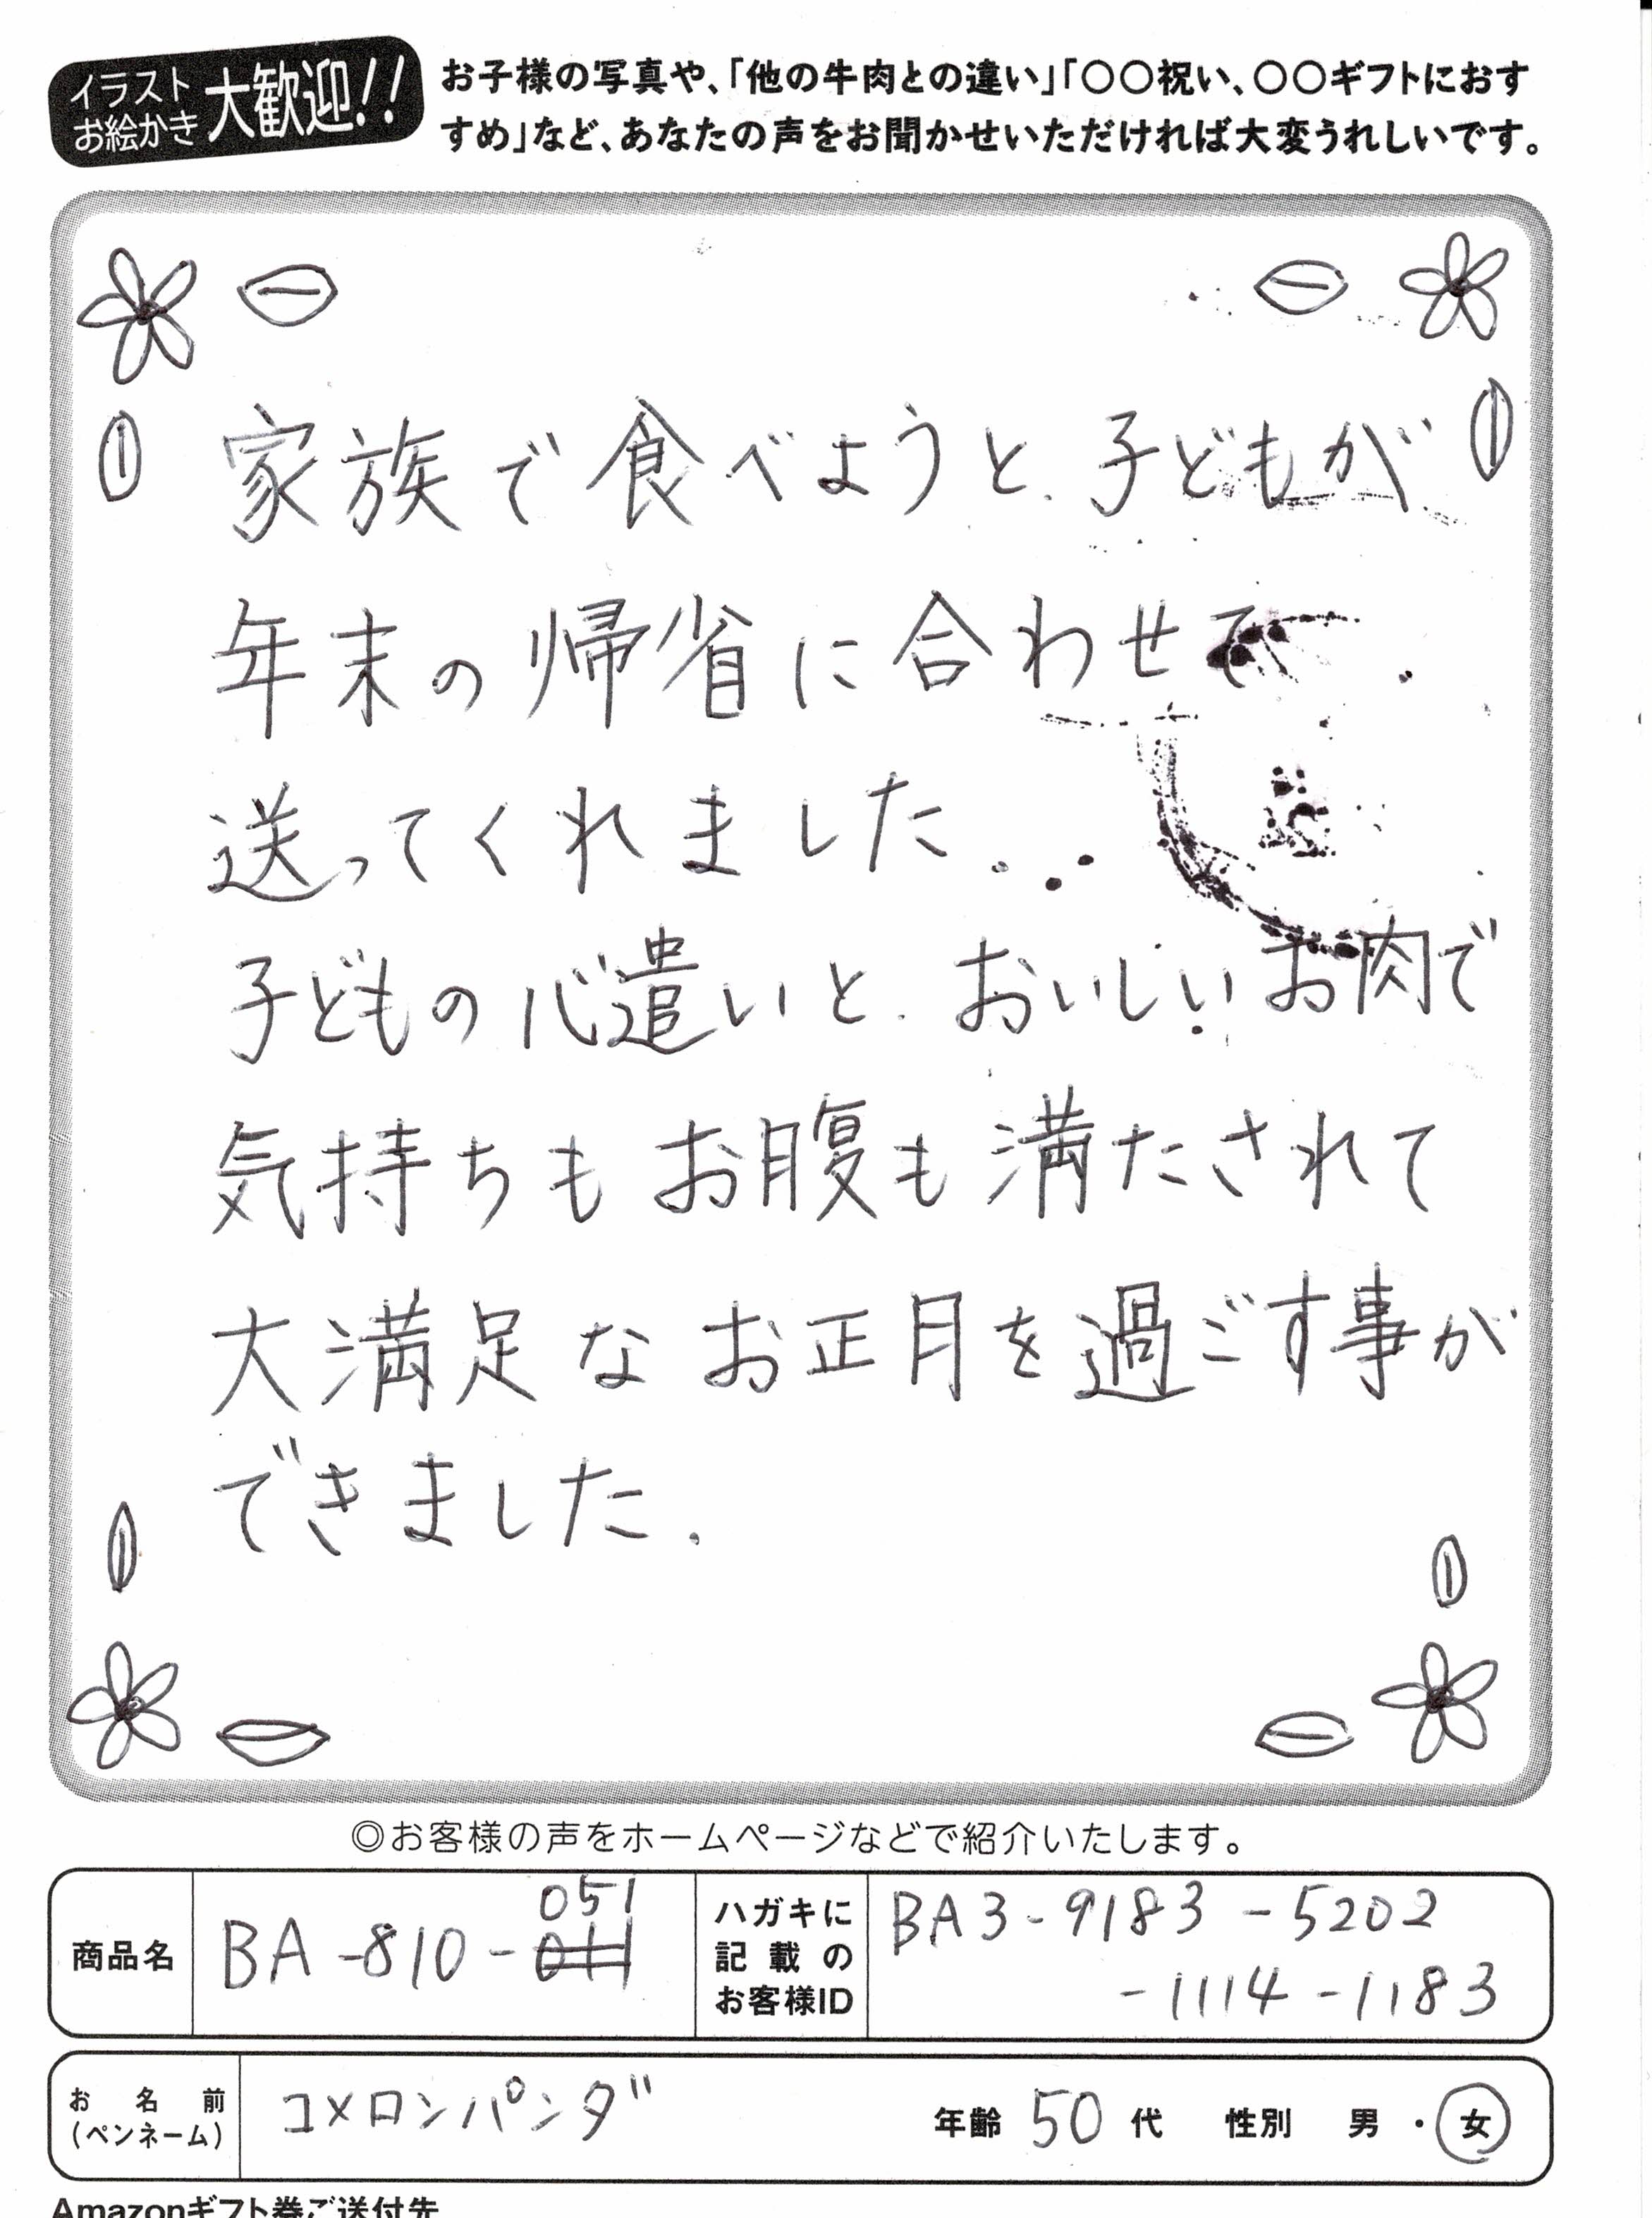 イラスト
お絵かき
大歓迎!!
お子様の写真や、「他の牛肉との違い」「○○祝い、○○ギフトにおす
すめ」など、あなたの声をお聞かせいただければ大変うれしいです。
家族で食べようと、子どもが
年末の帰省に合わせて
送ってくれました。
子どもの心遣いと、おいしいお肉で
気持ちもお腹も満たされて
大満足なお正月を過ごす事が
できました。
◎お客様の声をホームページなどで紹介いたします。
商品名
051
BA-810-011
ハガキに
記載の
お客様ID
BA3-9183-5202
-1114-1183
お名前
(ペンネーム)
コメロンパンダ
年齢 50 代 性別 男・女
Amazonギフト券ご送付先